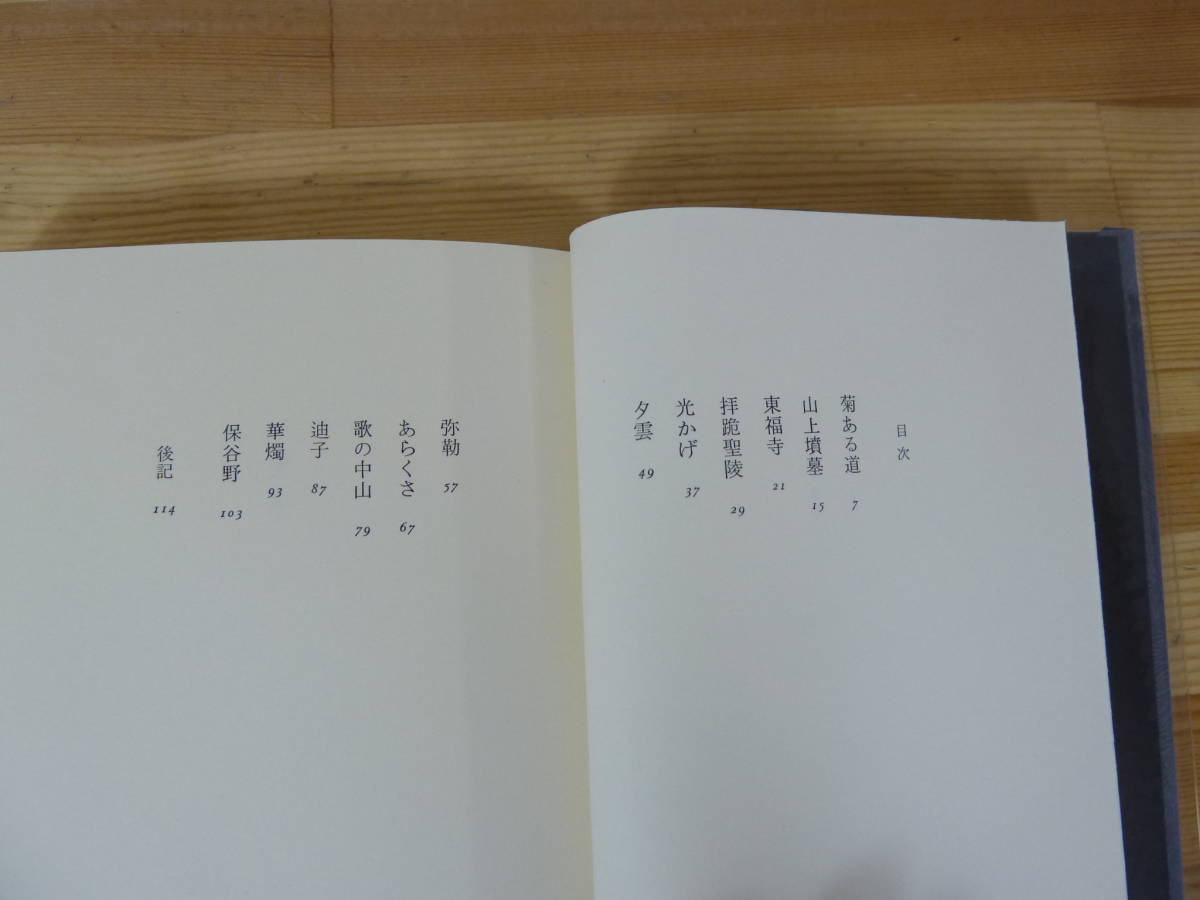 目次
菊ある道 7
山上墳墓 15
東福寺 21
拝跪聖陵 29
光かげ 37
夕雲 49
弥勒 57
あらくさ 67
歌の中山 79
迪子 87
華燭 93
保谷野 103
後記 114